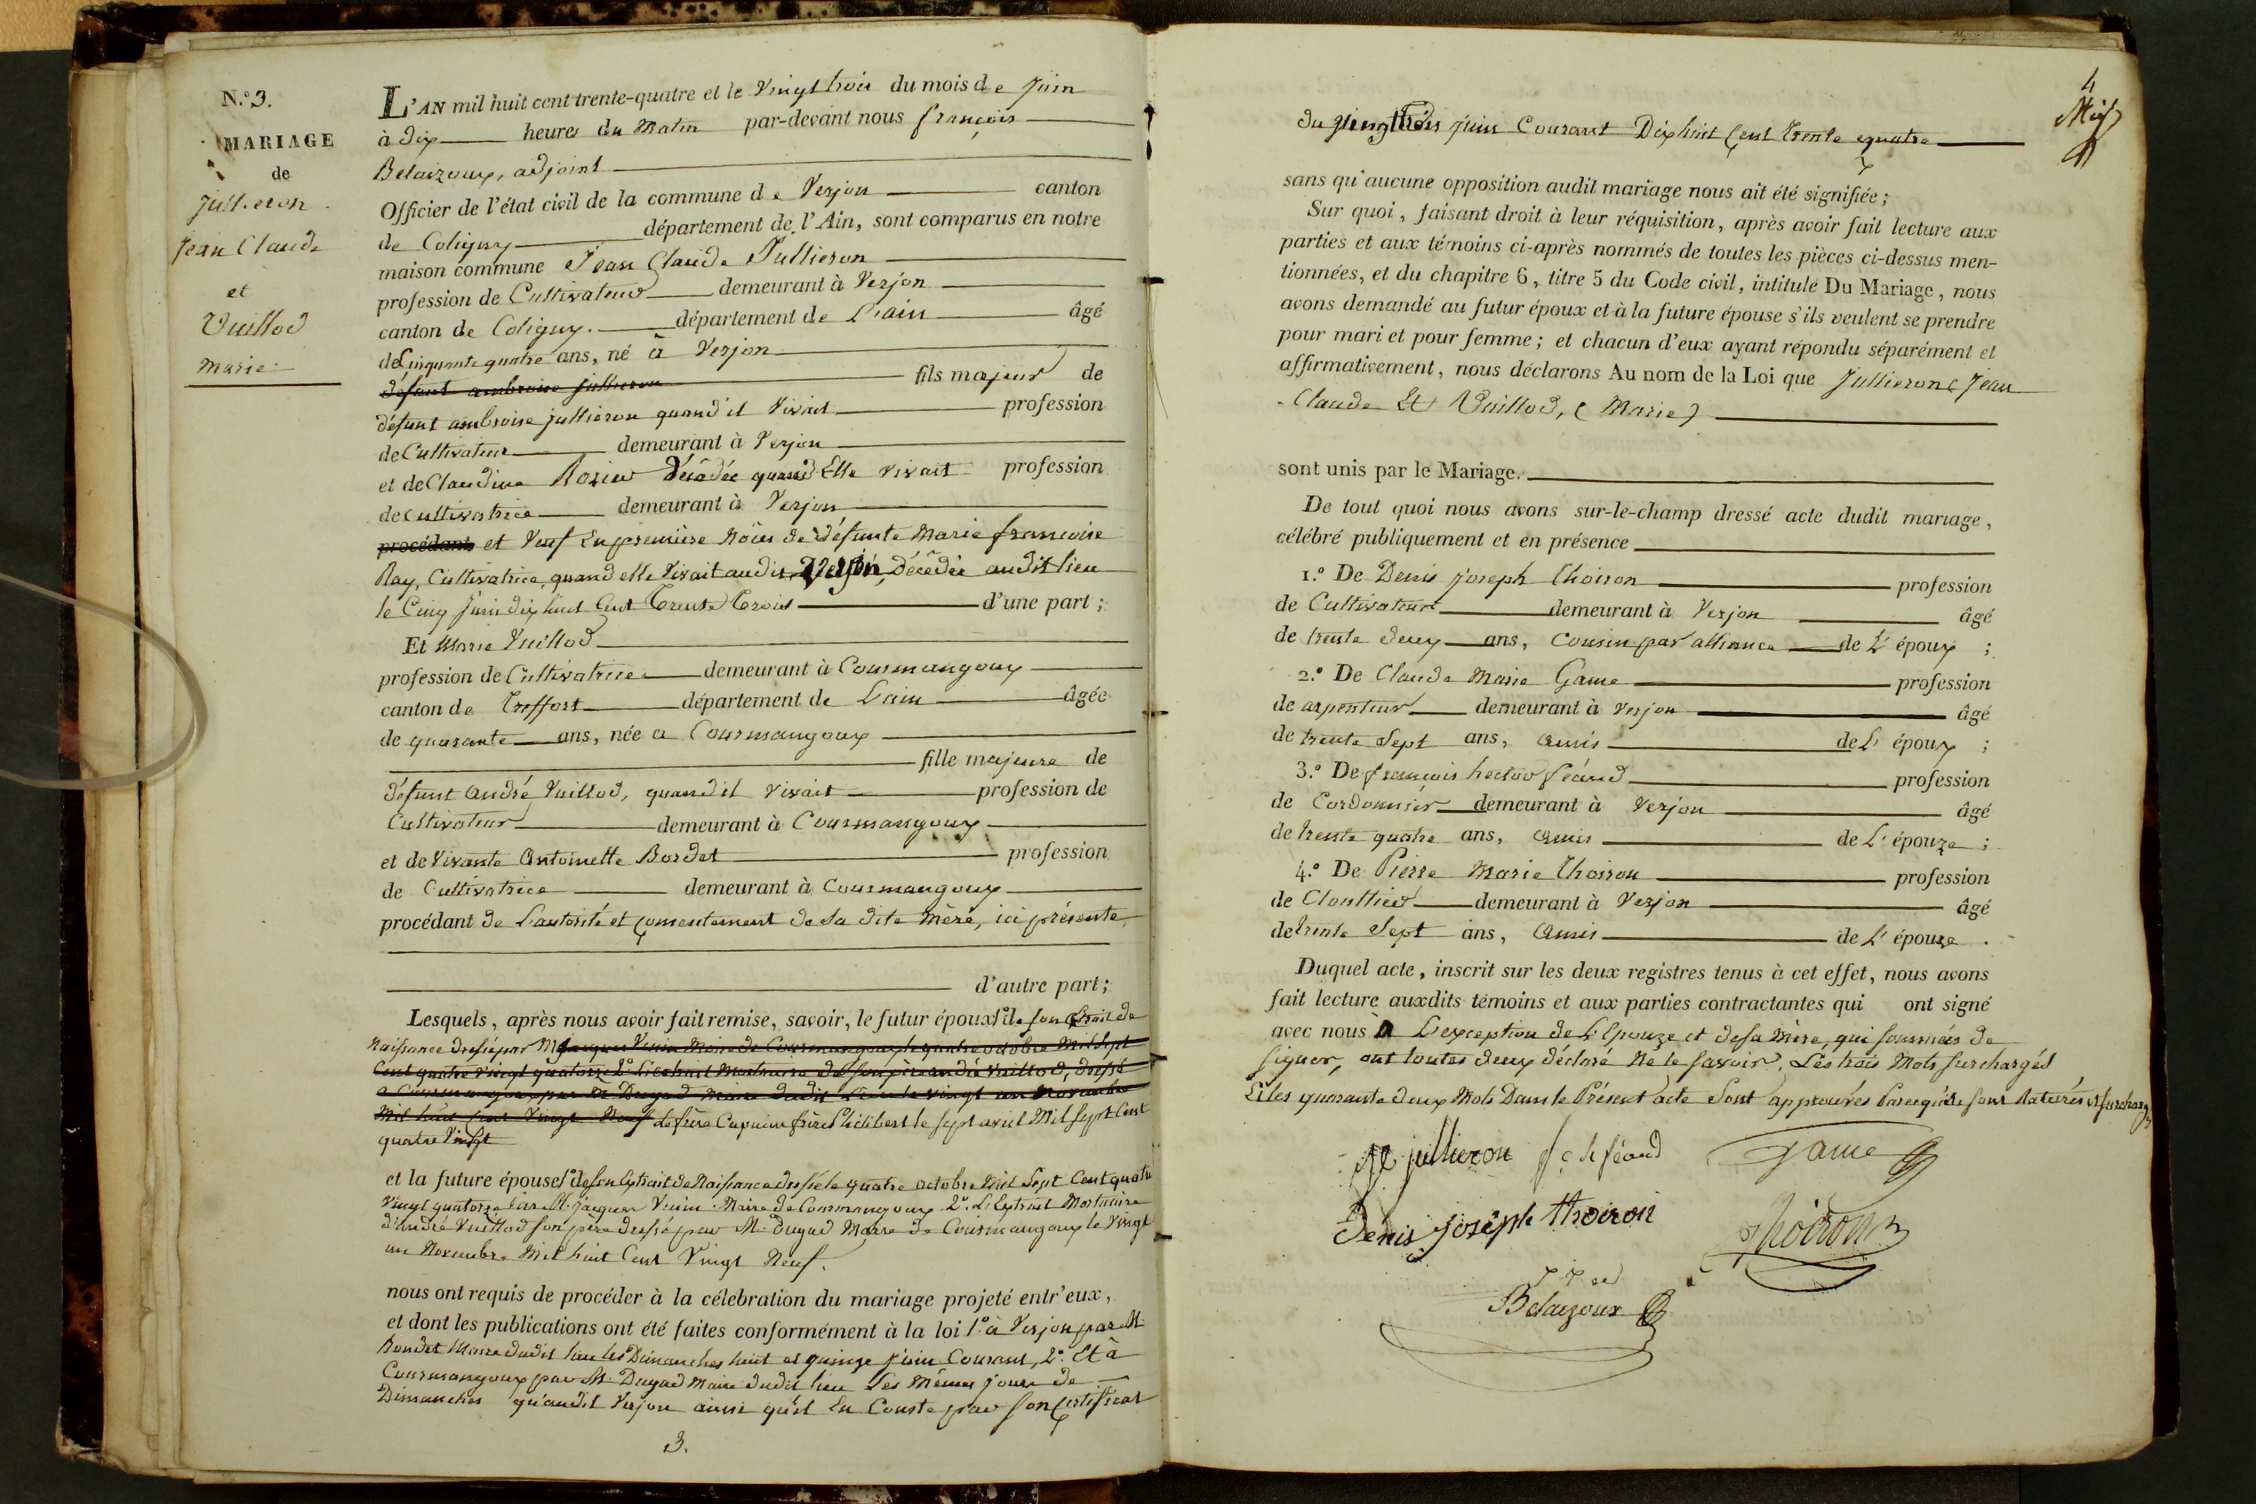 N.° 3.
MARIAGE
de
Jullieron
Jean Claude
et
Vuillod
Marie
L'AN mil huit cent trente-quatre et le vingt trois du mois de Juin
à dix heures du Matin par-devant nous françois
Belaizoux, adjoint
Officier de l'état civil de la commune de Verjon canton
de Coligny département de l'Ain, sont comparus en notre
maison commune Jean Claude Jullieron
profession de Cultivateur demeurant à Verjon
canton de Coligny. département de L'ain âgé
de Cinquante quatre ans, né à Verjon
défunt ambroise jullieron fils majeur de
défunt ambroise jullieron quand il vivait profession
de Cultivateur demeurant à Verjon
et de Claudine Rozier décédée quand Elle vivait profession
de cultivatrice demeurant à Verjon
procédant et veuf En première Nôces de défunte Marie françoise
Ray, Cultivatrice, quand elle vivait audit Verjon, décédée audit lieu
le Cinq Juin dix huit Cent Trente Trois d'une part;
Et Marie Vuillod
profession de Cultivatrice demeurant à Courmangoux
canton de Treffort département de L'ain âgée
de quarante ans, née a Courmangoux
fille majeure de
défunt André Vuillod, quand il vivait profession de
Cultivateur demeurant à Courmangoux
et de vivante Antoinette Bordet profession
de Cultivatrice demeurant à Courmangoux
procédant de L'autorité et consentement de sa dite Mère, ici présente
d'autre part;
Lesquels, après nous avoir fait remise, savoir, le futur époux 1° de son Extrait de
Naissance dressé par M Jacques Vuin Maire de Courmangoux le quatre octobre Mil Sept
Cent quatre vingt quatorze 2° L'extrait Mortuaire de son père andré Vuillod, dressé
a Courmangoux par M Dugad Maire dudit Lieu le vingt un Novembre
Mil huit Cent Vingt Neuf Le frère Capucin frère Philibert le Sept avril Mil Sept Cent
quatre Vingt
et la future épouse 1° de son Extrait de Naissance dressé le quatre octobre Mil Sept Cent quatre
Vingt quatorze par M. Jacques Vuin Maire de Courmangoux 2°. L'Extrait Mortuaire
d'André Vuillod son père dressé par M. Dugad Maire de Courmangoux le Vingt
un Novembre Mil huit Cent Vingt Neuf.
nous ont requis de procéder à la célebration du mariage projeté entr'eux,
et dont les publications ont été faites conformément à la loi 1° à Verjon par M.
Rondet Maire dudit lieu les Dimanches huit et quinze Juin Courant, 2°. Et à
Courmangoux par M. Dugad Maire dudit lieu Les Mêmes jours de
Dimanches qu'audit Verjon ainsi qu'il En Conste par son Certificat
3.
4
du Vingt trois Juin Courant Dix huit Cent Trente quatre
sans qu'aucune opposition audit mariage nous ait été signifiée;
Sur quoi, faisant droit à leur réquisition, après avoir fait lecture aux
parties et aux témoins ci-après nommés de toutes les pièces ci-dessus men-
tionnées, et du chapitre 6, titre 5 du Code civil, intitulé Du Mariage, nous
avons demandé au futur époux et à la future épouse s'ils veulent se prendre
pour mari et pour femme; et chacun d'eux ayant répondu séparément et
affirmativement, nous déclarons Au nom de la Loi que Jullieron (Jean
Claude Et Vuillod, (Marie)
sont unis par le Mariage.
De tout quoi nous avons sur-le-champ dressé acte dudit mariage,
célébré publiquement et en présence
1.° De Denis Joseph Thoiron profession
de Cultivateur demeurant à Verjon âgé
de trente deux ans, Cousin par alliance de L' époux;
2.° De Claude Marie Game profession
de arpenteur demeurant à Verjon âgé
de trente Sept ans, Amis de L' époux;
3.° De françois hector féaud profession
de Cordonnier demeurant à Verjon âgé
de trente quatre ans, Amis de L' épouze;
4.° De Pierre Marie Thoiron profession
de Clouttier demeurant à Verjon âgé
de trente Sept ans, Amis de L' épouze.
Duquel acte, inscrit sur les deux registres tenus à cet effet, nous avons
fait lecture auxdits témoins et aux parties contractantes qui ont signé
avec nous à L'exception de L'Epouze et de sa Mère, qui sommées de
signer, ont toutes deux déclaré Ne le savoir. Les trois Mots surchargés
Et les quarante deux Mots Dans le Présent acte Sont approuvés Parce qu'ils sont Raturés et surchargés
jullieron f c h féaud Game
Denis Joseph thoiron Thoiron
Belaizoux